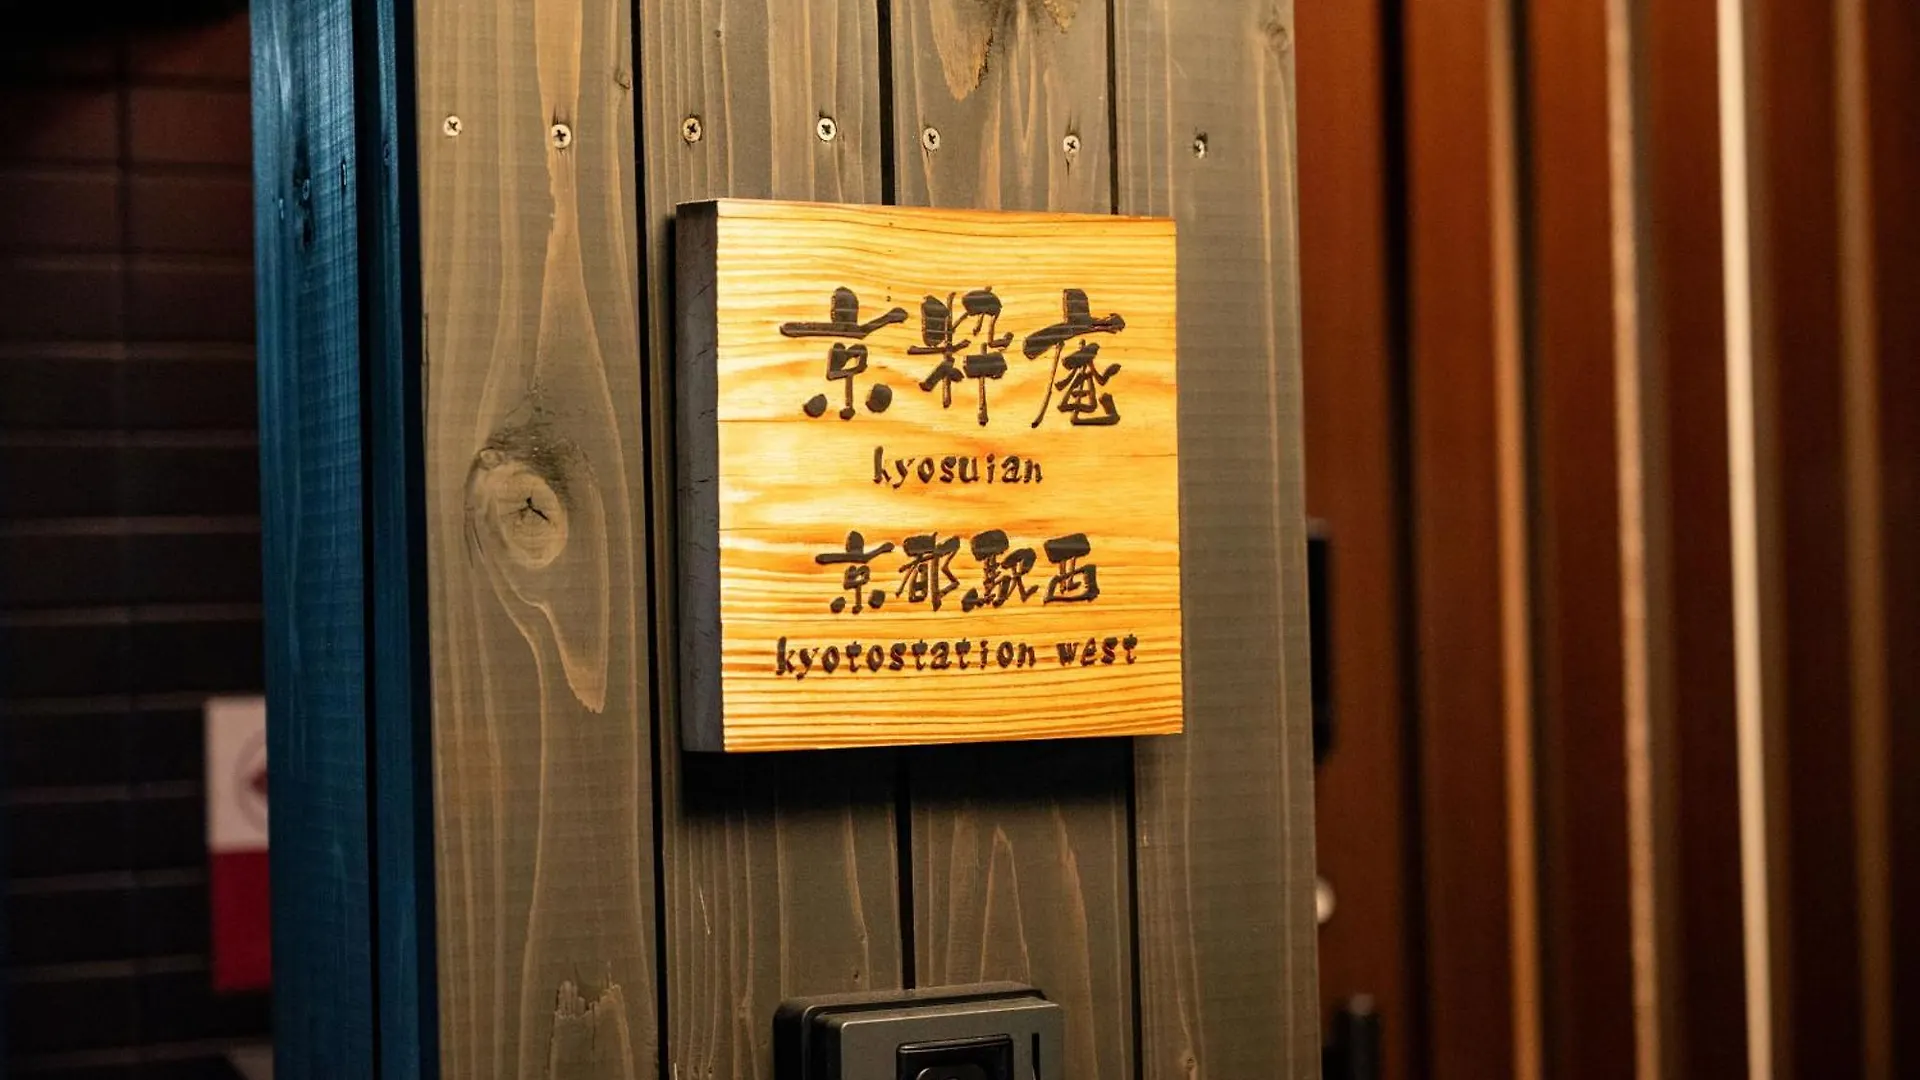 京粋庵
kyosuian
京都駅西
kyotostation west